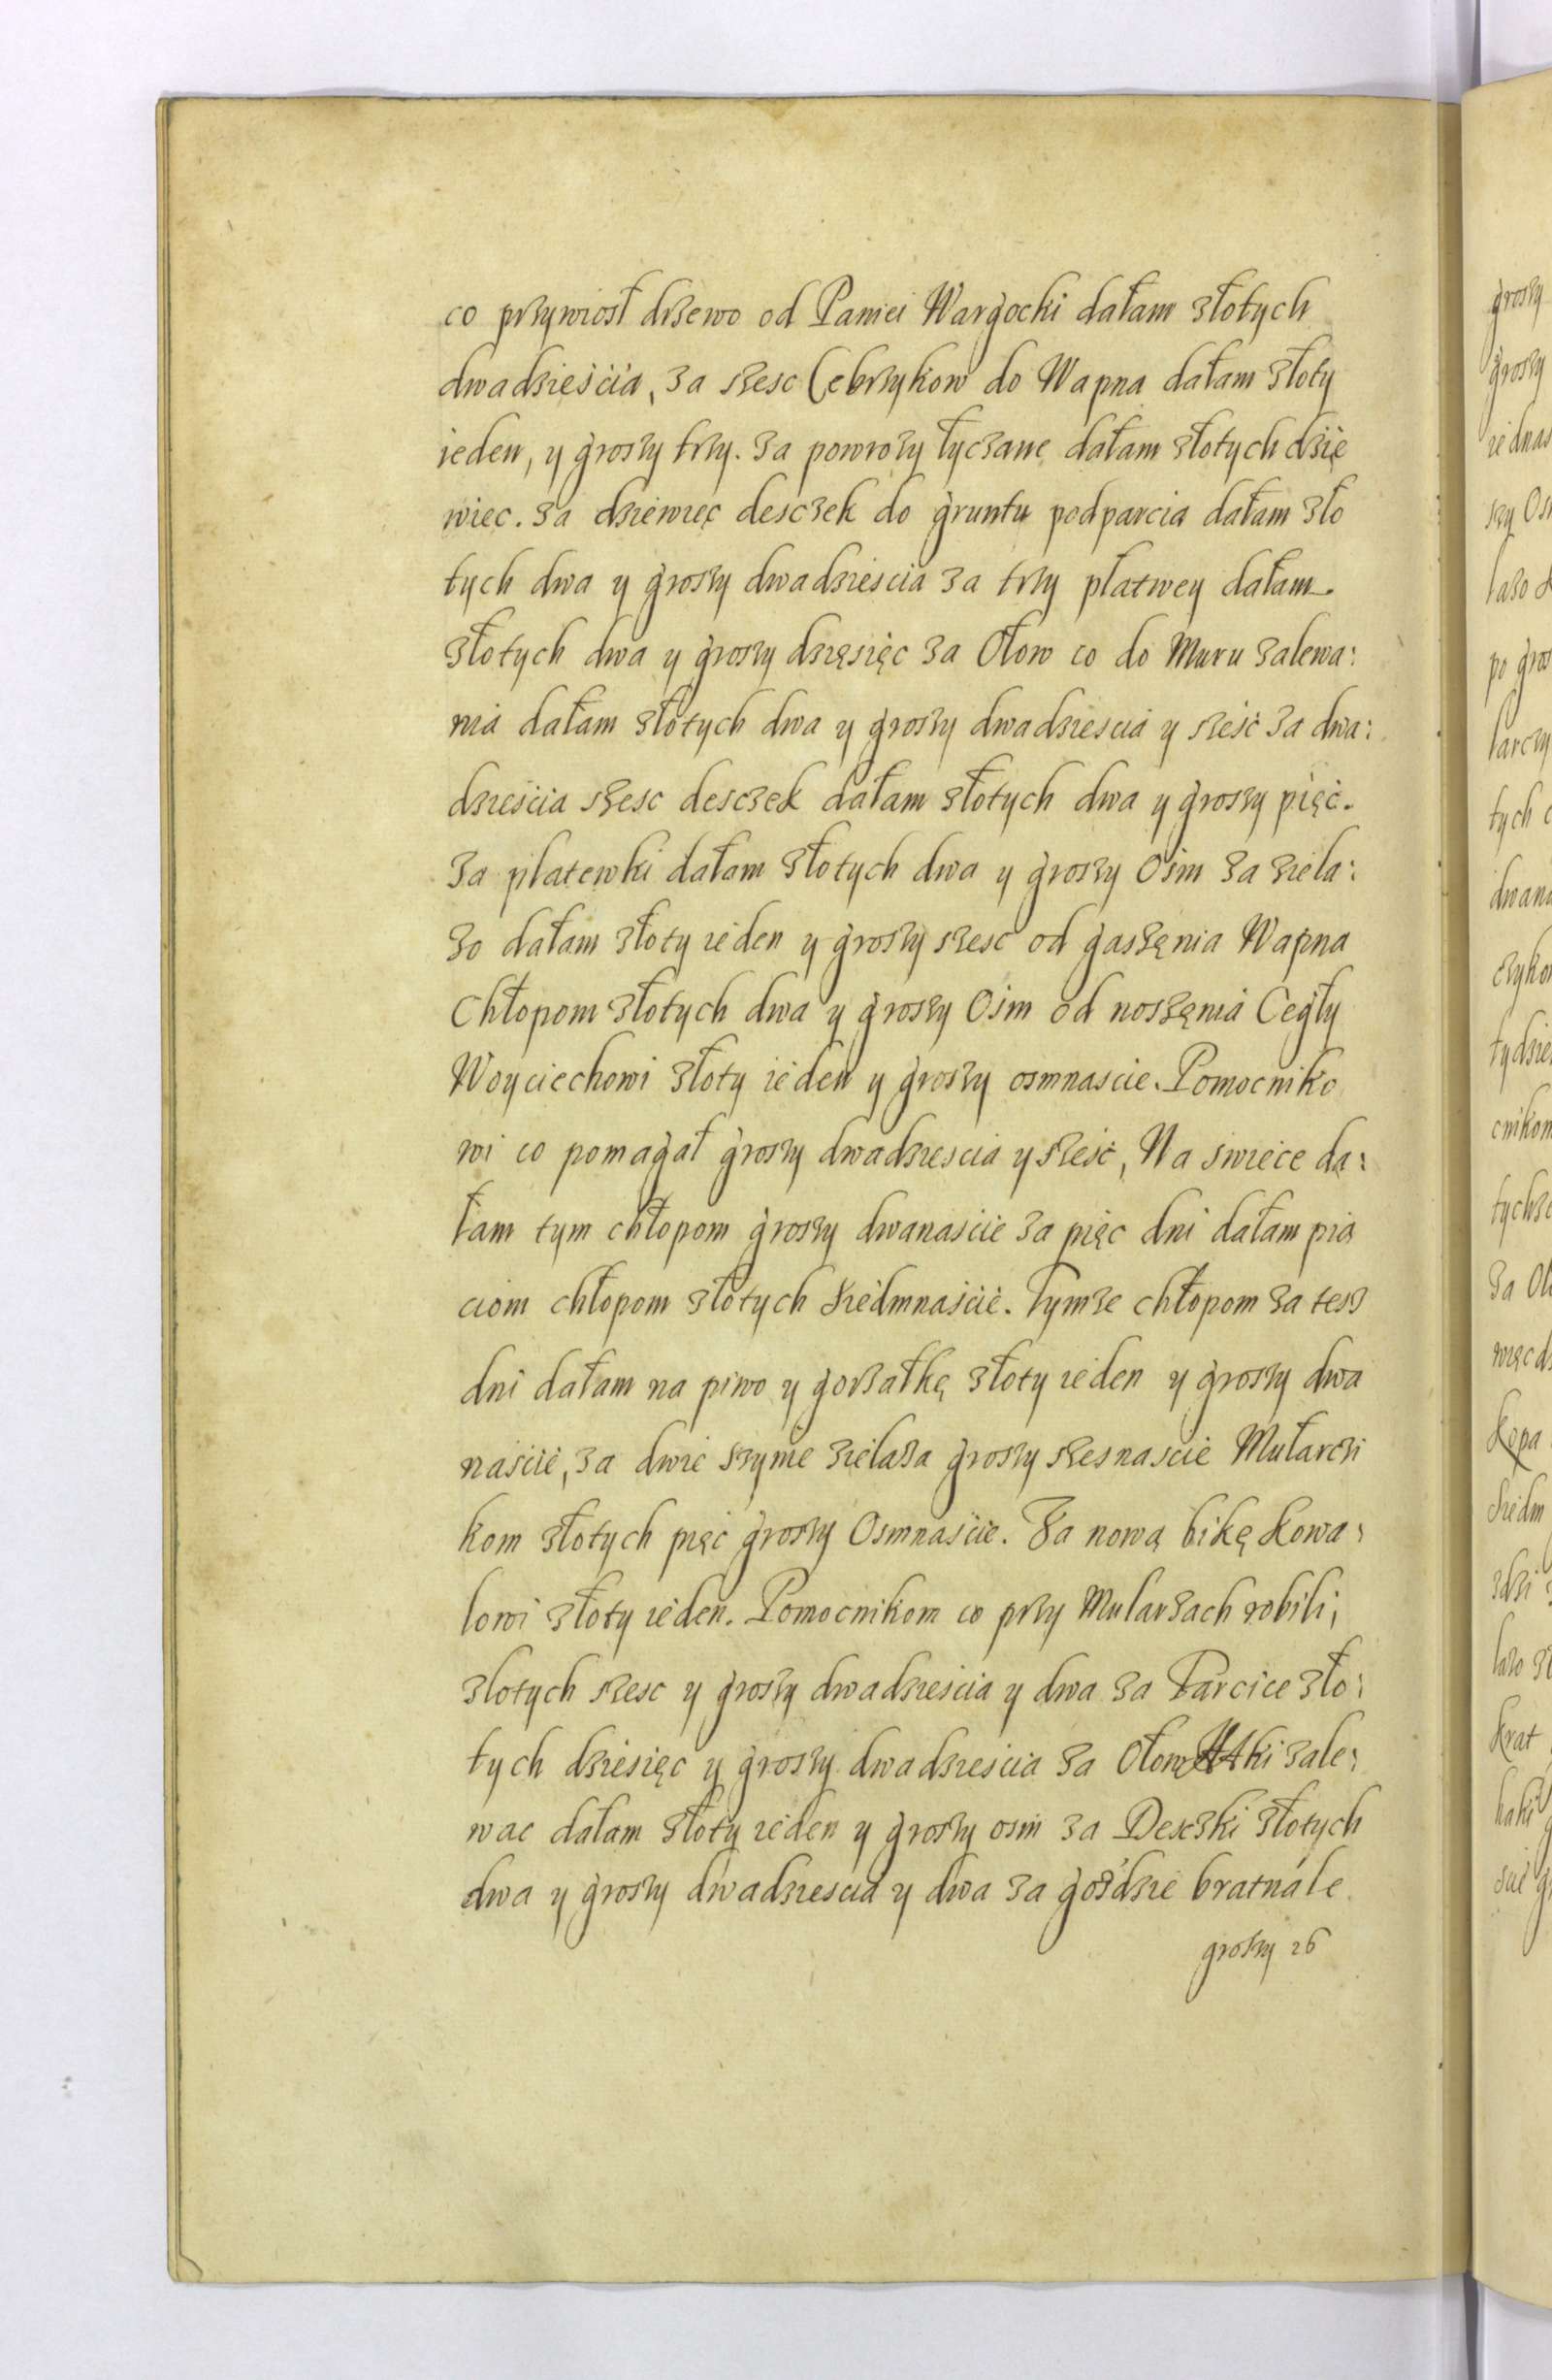 co przywiosł drzewo od Paniei Wargocki dałam złotych
dwadzieścia, za szesc Cebrzykow do Wapna dałam złoty
ieden, y groszy trzy. za powrozy łyczane dałam złotych dzie
wiec. za dziewięc desczek do gruntu podparcia dałam zło
tych dwa y groszy dwadziescia za trzy płatwey dałam
złotych dwa y groszy dzięsięc za Ołow co do Muru zalewa:
nia dałam złotych dwa y groszy dwadziescia y sześć za dwa:
dzieścia szesc desczek dałam złotych dwa y groszy pięć.
za platewki dałam złotych dwa y groszy Osim za ziela:
zo dałam złoty ieden y groszy szesc od gaszęnia Wapna
Chłopom złotych dwa y groszy Osim od noszęnia Cegły
Woyciechowi złoty ieden y groszy osmnascie. Pomocniko
wi co pomagał groszy dwadziescia y sześć, Na swiece da:
łam tym chłopom groszy dwanaście za pięc dni dałam pią
ciom chłopom złotych siedmnaście. Tymze chłopom za tesz
dni dałam na piwo y gorzałkę złoty ieden y groszy dwa
naście, za dwie szynie zielaza groszy szesnascie Mułarczi
kom złotych pięć groszy Osmnaście. Za nową bikę kowa:
lowi złoty ieden. Pomocnikom co przy Mularzach robili,
zlotych szesc y groszy dwadzieścia y dwa za Tarcice zło:
tych dziesięc y groszy dwadziescia za Ołow Haki zale:
wac dałam złoty ieden y groszy osm za Desczki złotych
dwa y groszy dwadziescia y dwa za goździe bratnále
groszy 26
groszy
groszy
iednas
szy Os
lazo
po gros
larczy
tych
dwana
czykow
tydzie
cnikom
tychze
za Oł
więc
Kopa
siedm
lazo
krat
haki